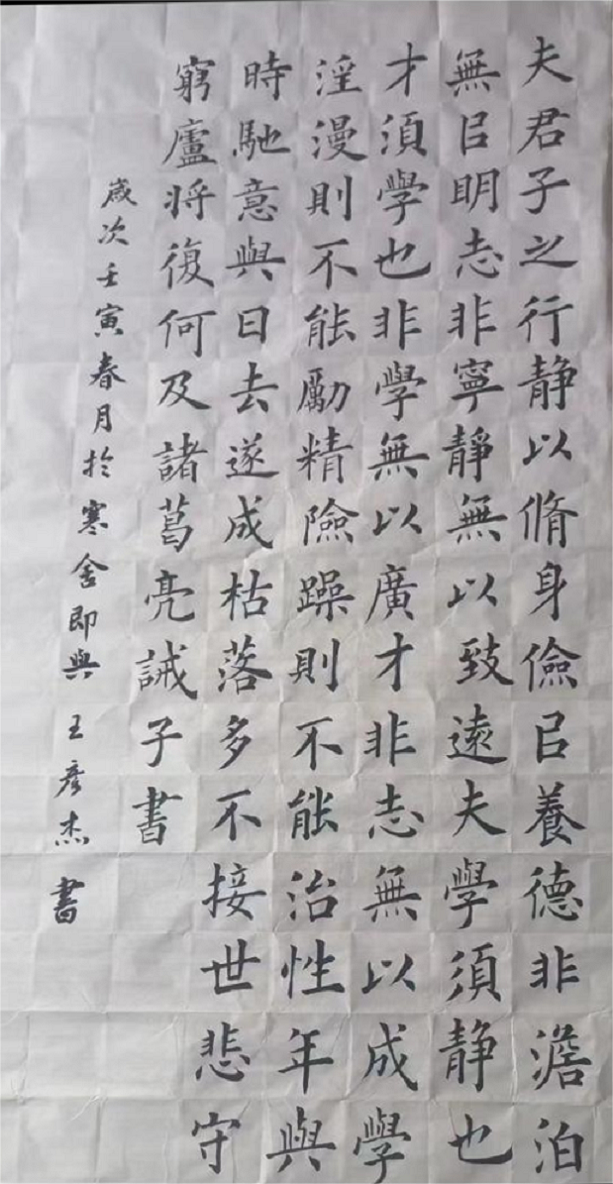 夫君子之行静以脩身儉㠯養德非澹泊
無㠯明志非寧靜無以致遠夫學須静也
才須學也非學無以廣才非志無以成學
淫漫則不能勵精險躁則不能治性年與
時馳意與日去遂成枯落多不接世悲守
窮廬将復何及諸葛亮誡子書
歲次壬寅春月於寒舍即興 王彥杰 書